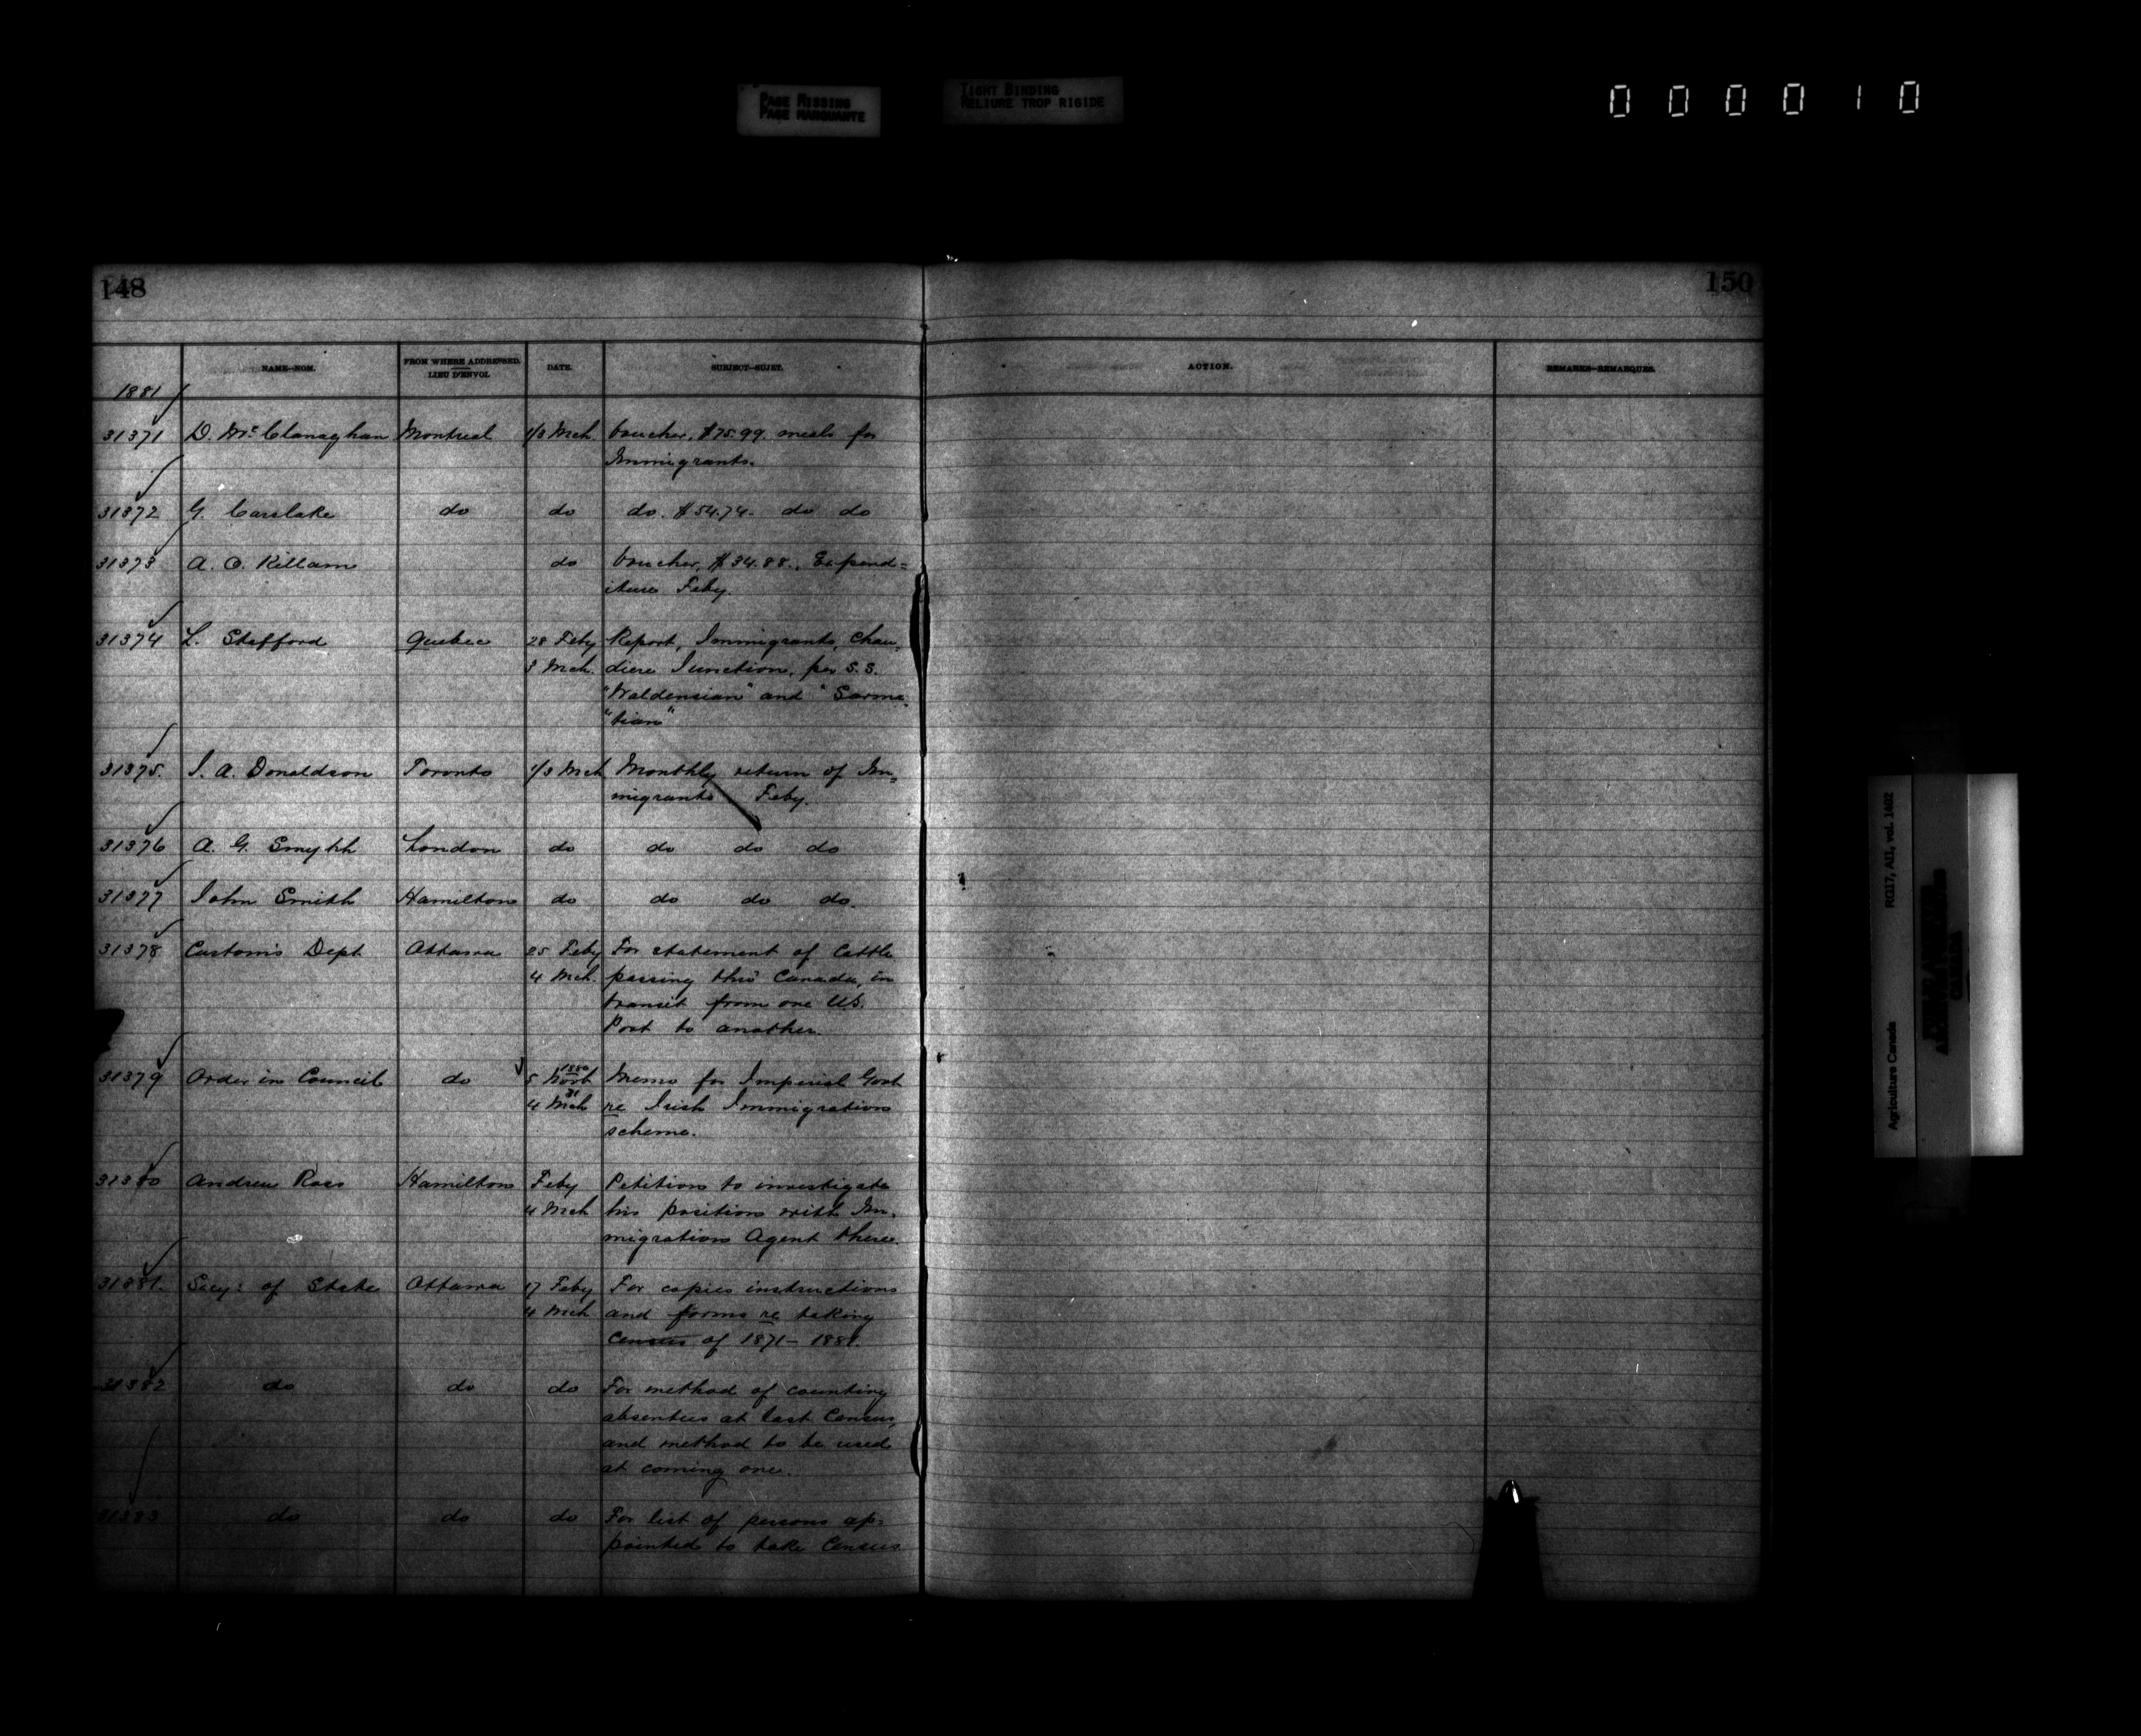 PAGE MISSING
PAGE MANQUANTE
TIGHT BINDING
RELIURE TROP RIGIDE
000010
148
150
NAME--NOM.
FROM WHERE ADDRESSED.
LIEU D'ENVOI.
DATE.
SUBJECT--SUJET.
ACTION.
REMARKS--REMARQUES.
1881
31371 D. McClanaghan Montreal 1/3 Mch Voucher, $75.99. meals for
Immigrants.
31372 G. Carslake do do do. $54.74. do do
31373 A. O. Killam do Voucher, $34.88., Expend=
iture Feby.
31374 L. Stafford Quebec 28 Feby Report, Immigrants, Chau,
3 Mch. diere Junction, per S.S.
"Waldensian" and "Sarma,
"tian"
31375. J. A. Donaldson Toronto 1/3 Mch Monthly return of Im,
migrants Feby.
31376 A. G. Smyth London do do do do
31377 John Smith Hamilton do do do do.
31378 Customs Dept Ottawa 25 Feby For statement of Cattle
4 Mch. passing thro' Canada, in
transit from one U.S.
Port to another.
31379 Order in Council do 5 Novb 1880 Memo for Imperial Govt
4 Mch 81 re Irish Immigration
scheme.
31380 Andrew Ross Hamilton Feby Petition to investigate
4 Mch his position with Im,
migration Agent there.
31381. Secy: of State Ottawa 17 Feby For copies instructions
4 Mch and forms re taking
Census of 1871 - 1881.
31382 do do do For method of counting
absentees at last Census,
and method to be used
at coming one.
31383 do do do For list of persons ap=
pointed to take Census
Agriculture Canada RG17, AII, vol. 1602